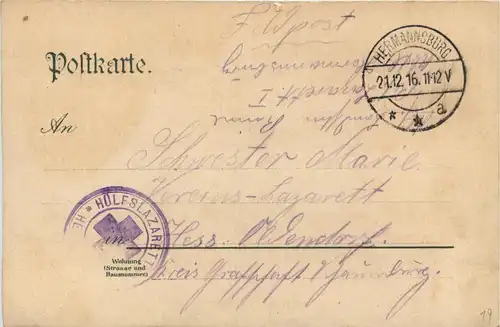 Feldpost
HERMANNSBURG
21.12.16.11-12V
* * a
Postkarte.
An
Schwester Marie
Vereins-Lazarett
in Hess. Oldendorf
Kreis Grafschaft Schaumburg.
HÜLFSLAZARETT * HE
Wohnung
(Strasse und
Hausnummer)